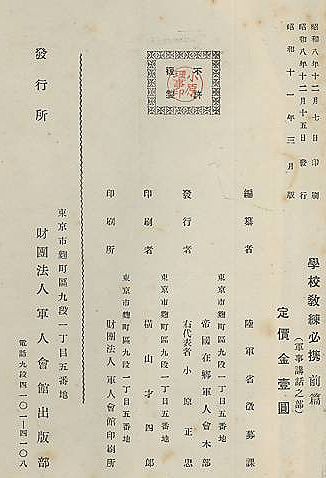 昭和八年十二月七日印刷
昭和八年十二月十五日發行
昭和十一年三月版
學校教練必携前篇
(軍事講話之部)
定價金壹圓
編纂者 陸軍省徵募課
東京市麴町區九段一丁目五番地
帝國在鄕軍人會本部
發行者 右代表者 小原正忠
東京市麴町區九段一丁目五番地
印刷者 橫山才四郎
東京市麴町區九段一丁目五番地
印刷所 財團法人 軍人會館印刷所
不許複製
小原
發行所
東京市麴町區九段一丁目五番地
財團法人軍人會館出版部
電話九段四一〇一—四一〇八